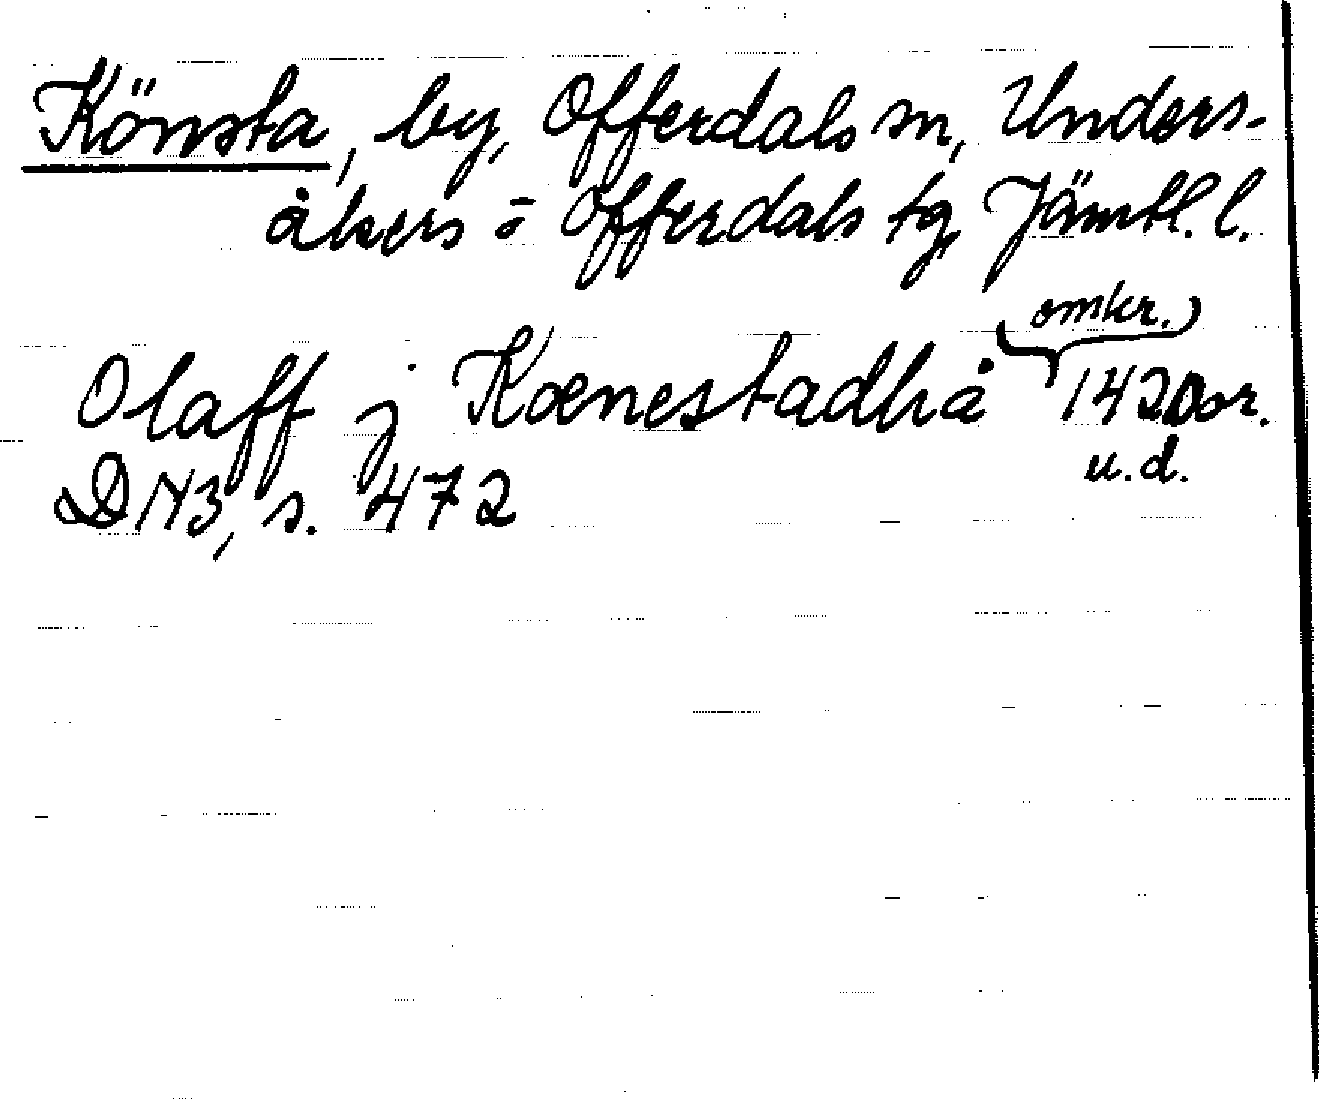 Könsta, by, Offerdals sn, Unders-
åkers o Offerdals tg, Jämtl. l.
omkr.
Olaff j Kœnestadhå 1420 or.
u.d.
DN 3, s. 472